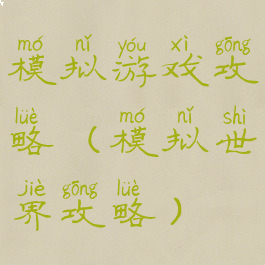 mó nǐ yóu xì gōng
模拟游戏攻
lüè mó nǐ shì
略（模拟世
jiè gōng lüè
界攻略）